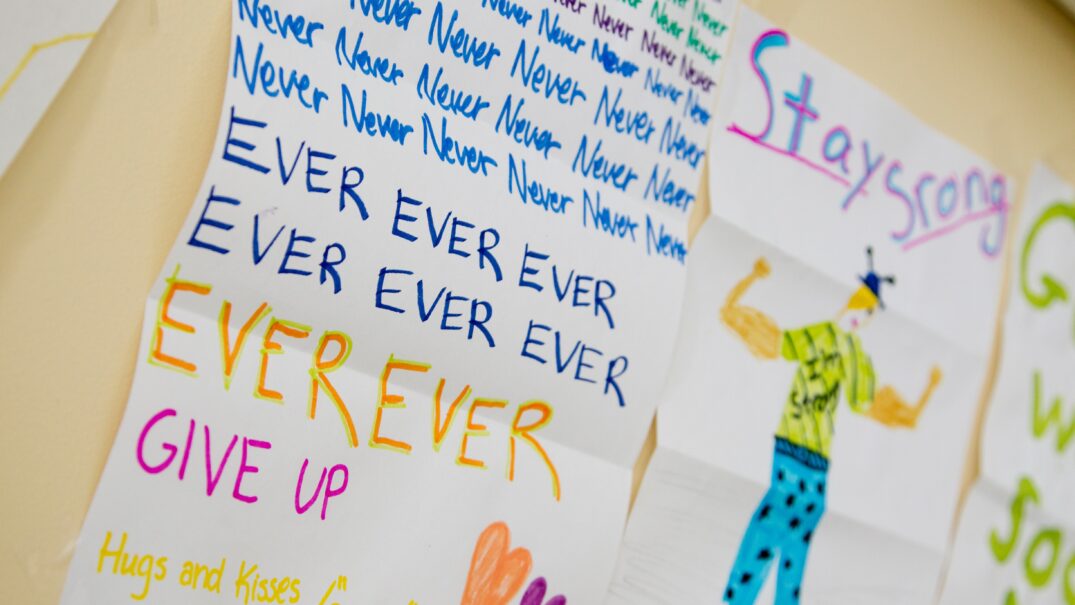 Never
Never Never
Never Never Never
Never Never Never Never Never
Never Never Never Never Never
Never Never Never Never Never Never
Never Never Never Never Never Never
EVER EVER EVER
EVER EVER EVER
EVER EVER
GIVE UP
Hugs and Kisses
Stay srong
I'm
strong